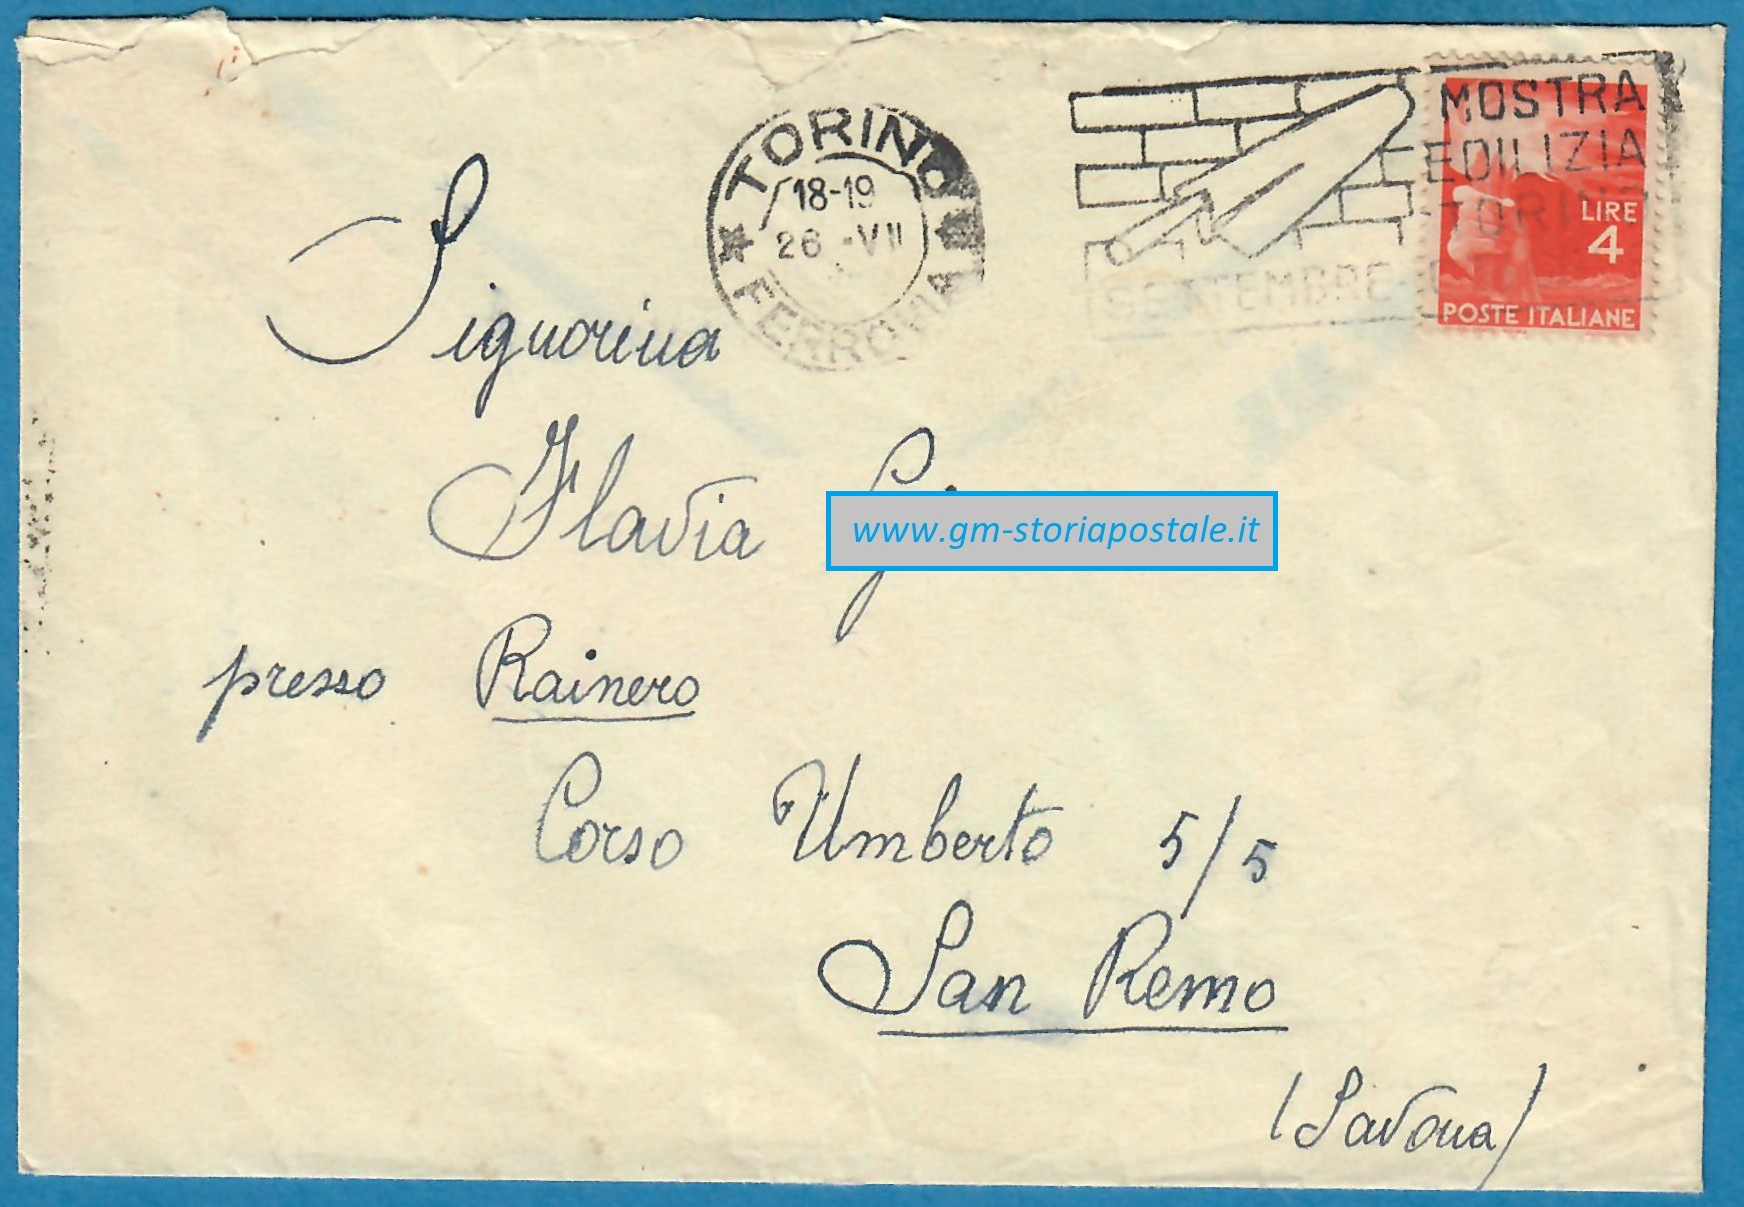 TORINO
18-19
26 -VII
FERROVIA
MOSTRA
EDILIZIA
TORINO
SETTEMBRE
LIRE
4
POSTE ITALIANE
Signorina
Flavia
www.gm-storiapostale.it
presso Rainero
Corso Umberto 5/5
San Remo
(Savona)